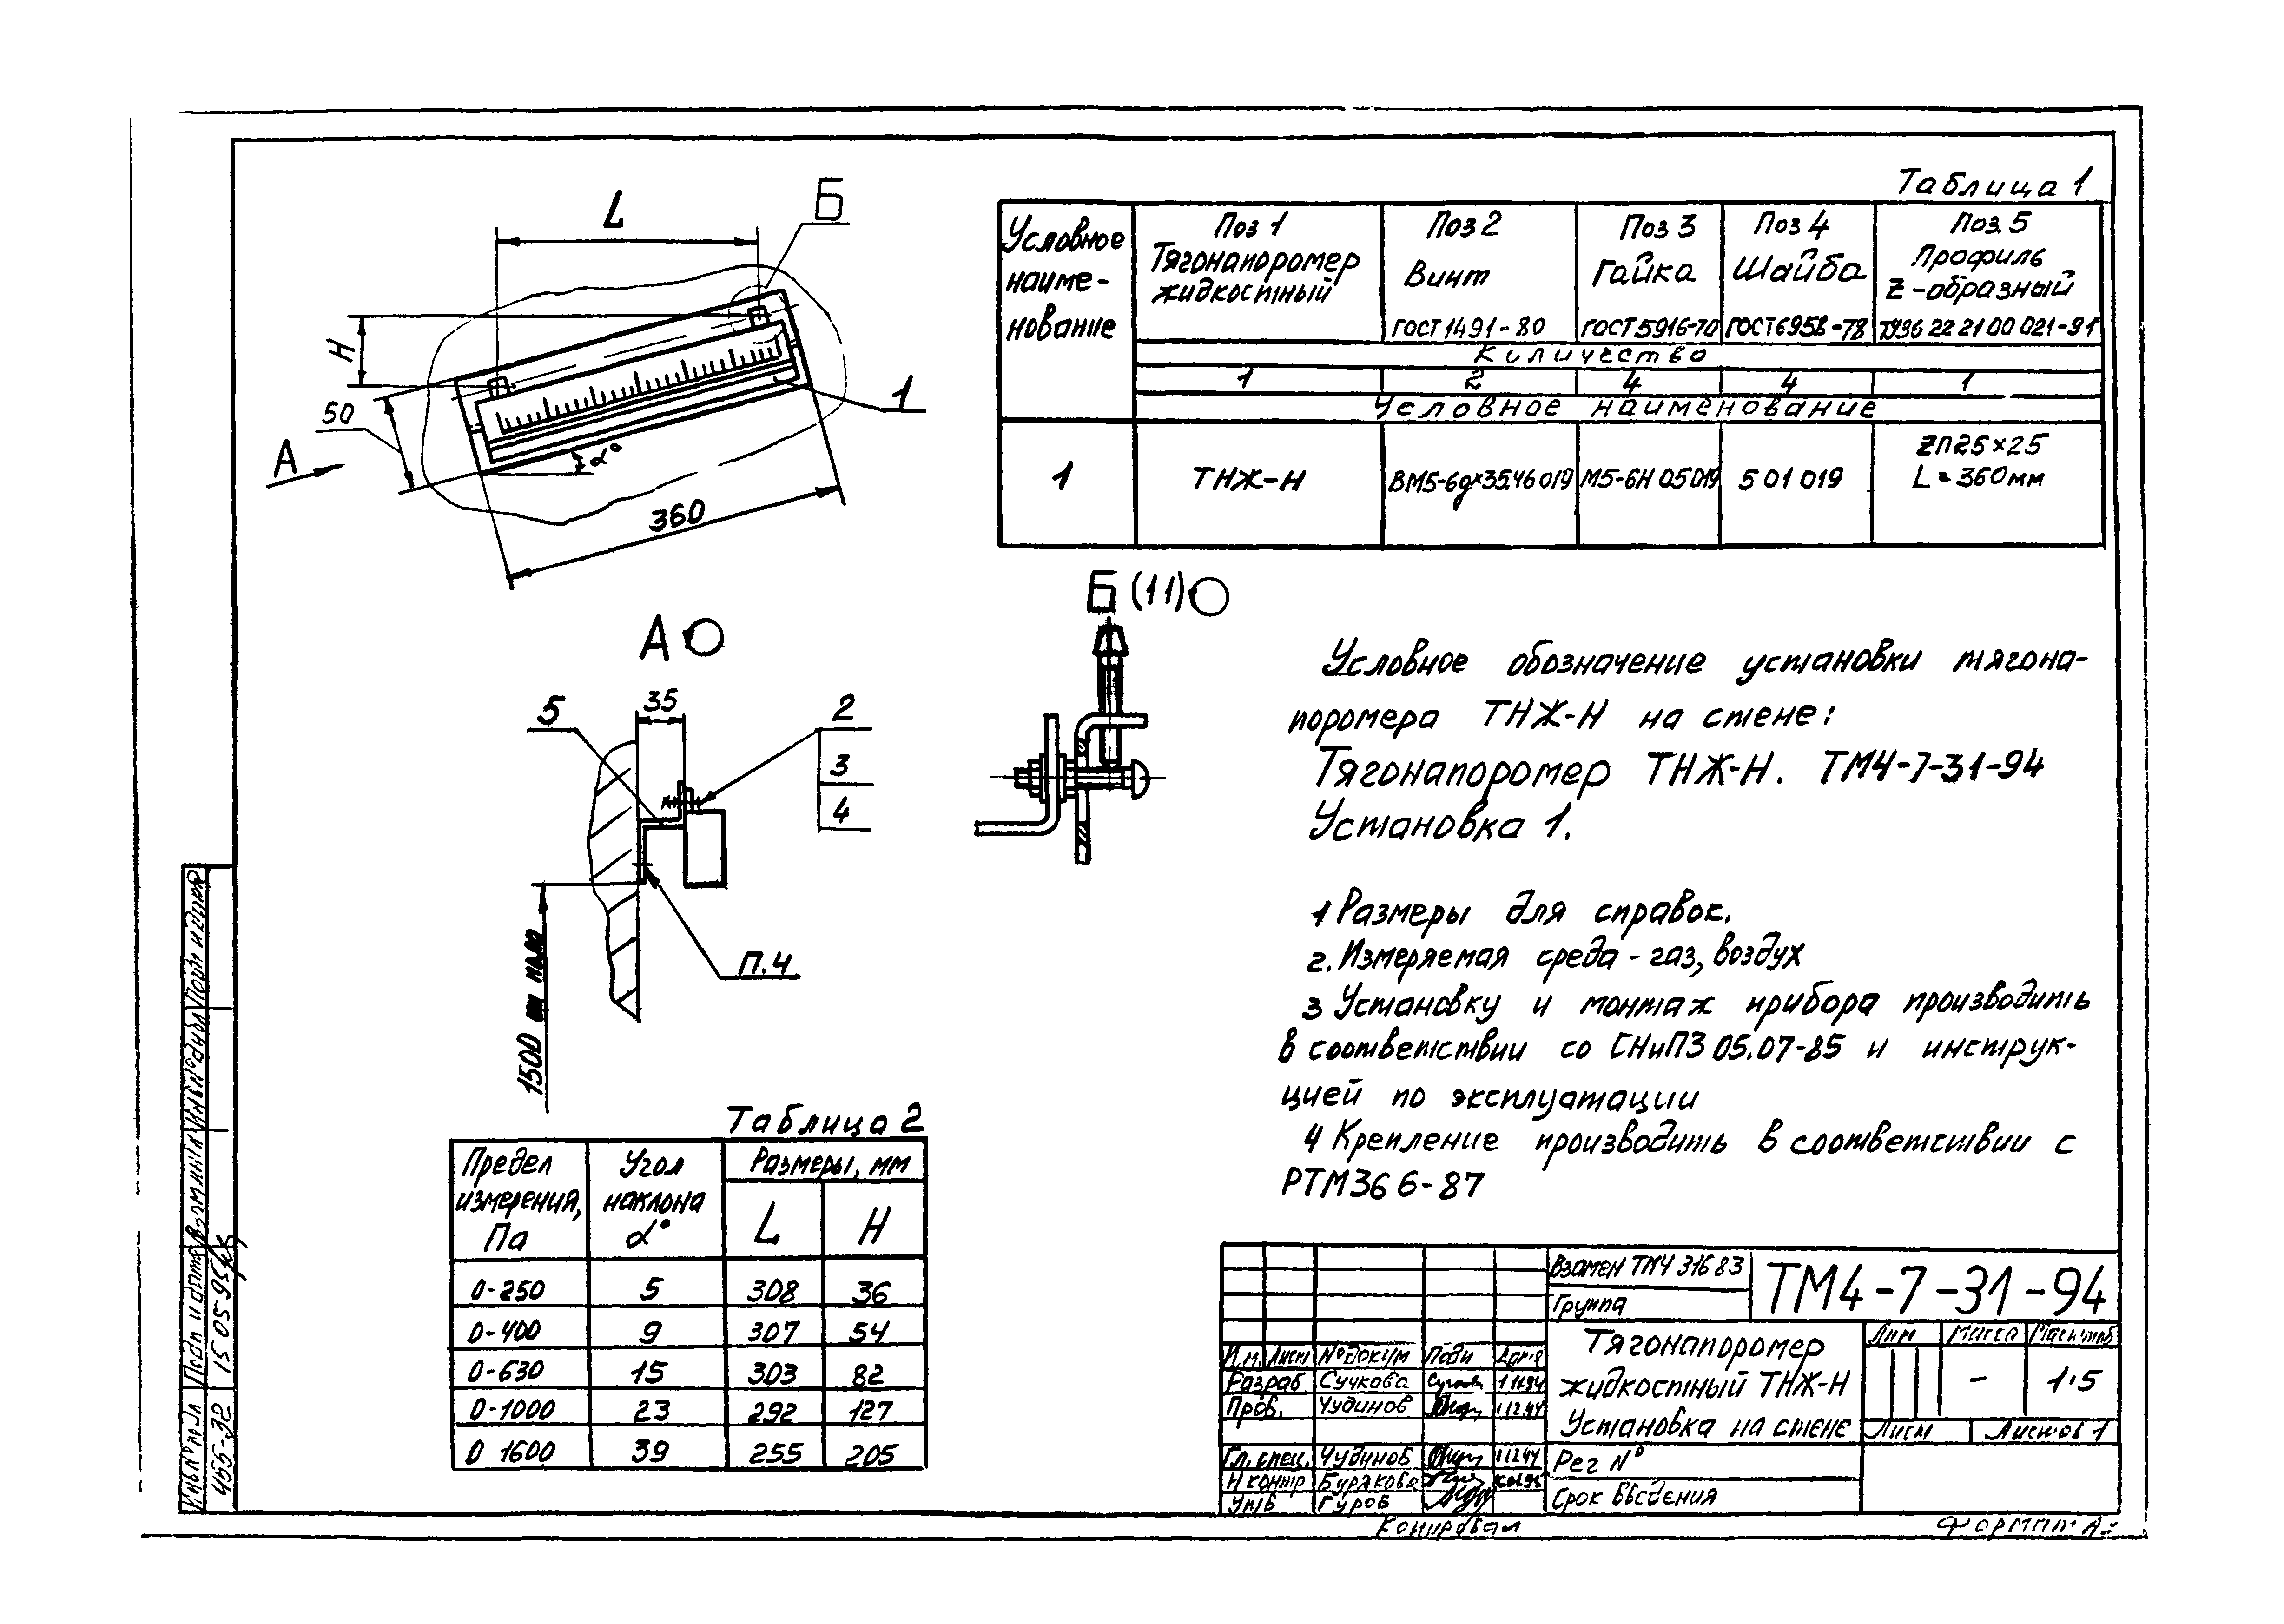 L
Б
H
50
А
α°
360
1
Таблица 1
Условное наиме-нование
Поз 1 Тягонапоромер жидкостный
Поз 2 Винт ГОСТ 1491-80
Поз 3 Гайка ГОСТ 5916-70
Поз 4 Шайба ГОСТ 6958-78
Поз. 5 Профиль Z-образный ТУ36 22 21 00 021-91
Количество
1 2 4 4 1
Условное наименование
1 ТНЖ-Н ВМ5-6g×35.46 019 М5-6Н 05 019 5 01 019 ZП25×25 L=360мм
А
5
35
2
3
4
П.4
1500
Б (1:1)
Условное обозначение установки тягона-
поромера ТНЖ-Н на стене:
Тягонапоромер ТНЖ-Н. ТМ4-7-31-94
Установка 1.
1 Размеры для справок.
2. Измеряемая среда - газ, воздух
3 Установку и монтаж прибора производить
в соответствии со СНиП3 05.07-85 и инструк-
цией по эксплуатации
4 Крепление производить в соответствии с
РТМ36 6-87
Таблица 2
Предел измерения, Па
Угол наклона α°
Размеры, мм
L H
0-250 5 308 36
0-400 9 307 54
0-630 15 303 82
0-1000 23 292 127
0 1600 39 255 205
Взамен ТМ4 316 83
Группа
ТМ4-7-31-94
Тягонапоромер
жидкостный ТНЖ-Н
Установка на стене
Лит Масса Масштаб
- 1:5
Лист Листов 1
Изм. Лист № докум Подп Дата
Разраб Сучкова
Пров. Чудинов
Гл. спец. Чудинов
Н контр Бурякова
Утв Гуров
Рег №
Срок введения
Копировал
Формат
Инв № подл Подп и дата Взам инв № Инв № дубл Подп и дата
455-32 15 05 95